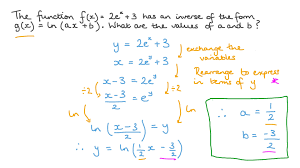 The function f(x) = 2eˣ + 3 has an inverse of the form
g(x) = ln (ax + b). What are the values of a and b?
y = 2eˣ + 3
exchange the variables
x = 2eʸ + 3
Rearrange to express in terms of y
x - 3 = 2eʸ
÷2
÷2
x - 3 / 2 = eʸ
ln
ln
ln (x - 3 / 2) = y
∴ y = ln (1/2 x - 3/2)
∴ a = 1/2
b = -3/2